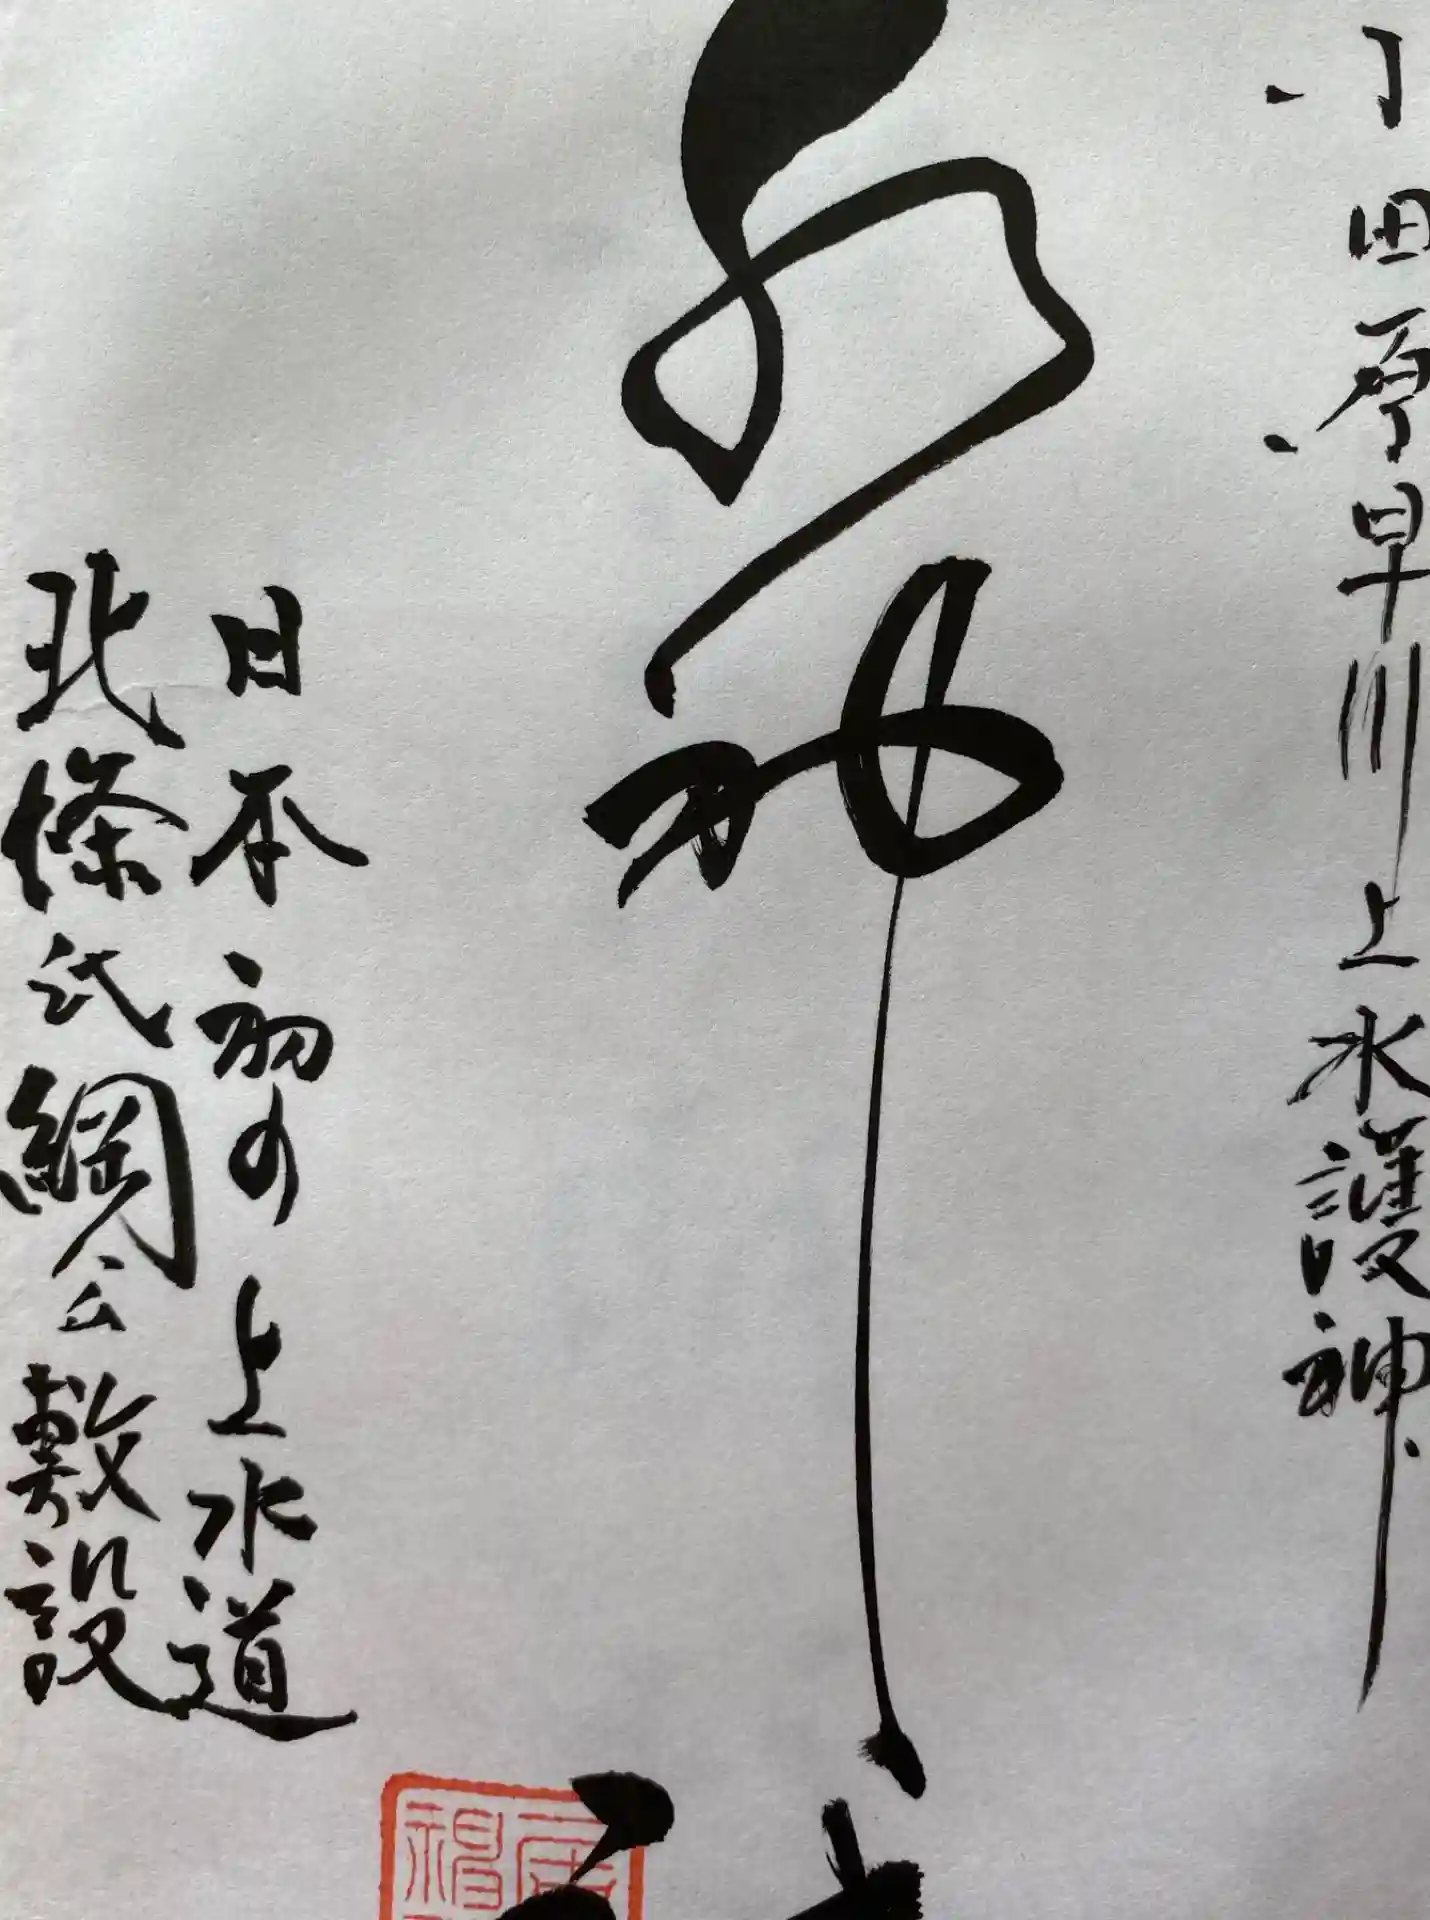 小田原早川上水護神
神
日本初の上水道
北條氏綱公敷設